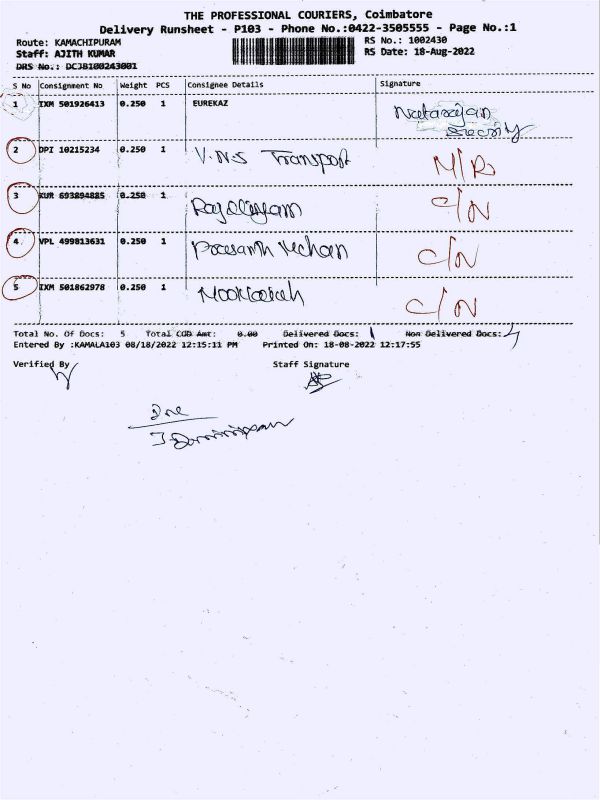 THE PROFESSIONAL COURIERS, Coimbatore
Delivery Runsheet - P103 - Phone No.:0422-3505555 - Page No.:1
Route: KAMACHIPURAM RS No.: 1002430
Staff: AJITH KUMAR RS Date: 18-Aug-2022
DRS No.: DCJB100243001
S No Consignment No Weight PCS Consignee Details Signature
1 IXM 501926413 0.250 1 EUREKAZ Natarajan
Security
2 DPI 10215234 0.250 1 V.N.S Transport M/R
3 KUR 693894885 0.250 1 C/N
4 VPL 499813631 0.250 1 Prasanth Mohan C/N
5 IXM 501862978 0.250 1 C/N
Total No. Of Docs: 5 Total COD Amt: 0.00 Delivered Docs: 1 Non Delivered Docs: 4
Entered By :KAMALA103 08/18/2022 12:15:11 PM Printed On: 18-08-2022 12:17:55
Verified By Staff Signature